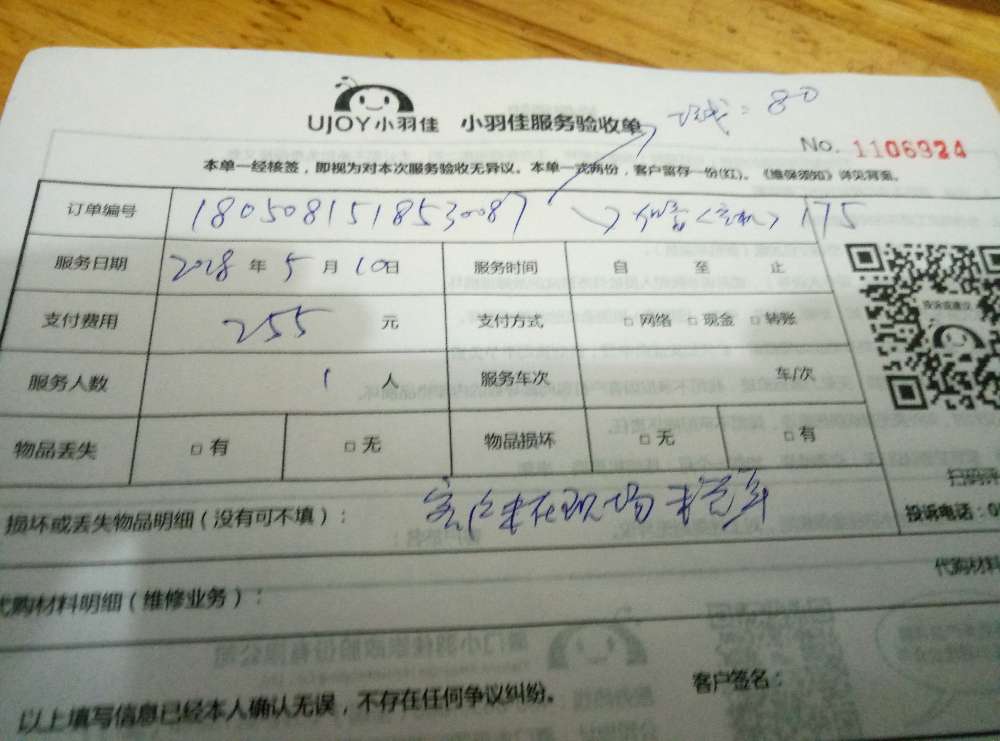 UJOY小羽佳 小羽佳服务验收单
: 80
No. 1106924
本单一经核签，即视为对本次服务验收无异议。本单一式两份，客户留存一份(红)。《维保须知》详见背面。
订单编号 180508151853087 175
服务日期 2018 年 5 月 10日 服务时间 自 至 止
支付费用 255 元 支付方式 □ 网络 □ 现金 □ 转账
服务人数 1 人 服务车次 车/次
物品丢失 □ 有 □ 无 物品损坏 □ 无 □ 有
投诉电话：0
损坏或丢失物品明细（没有可不填）： 客户未在现场
代购材料
代购材料明细（维修业务）：
客户签名：
以上填写信息已经本人确认无误，不存在任何争议纠纷。